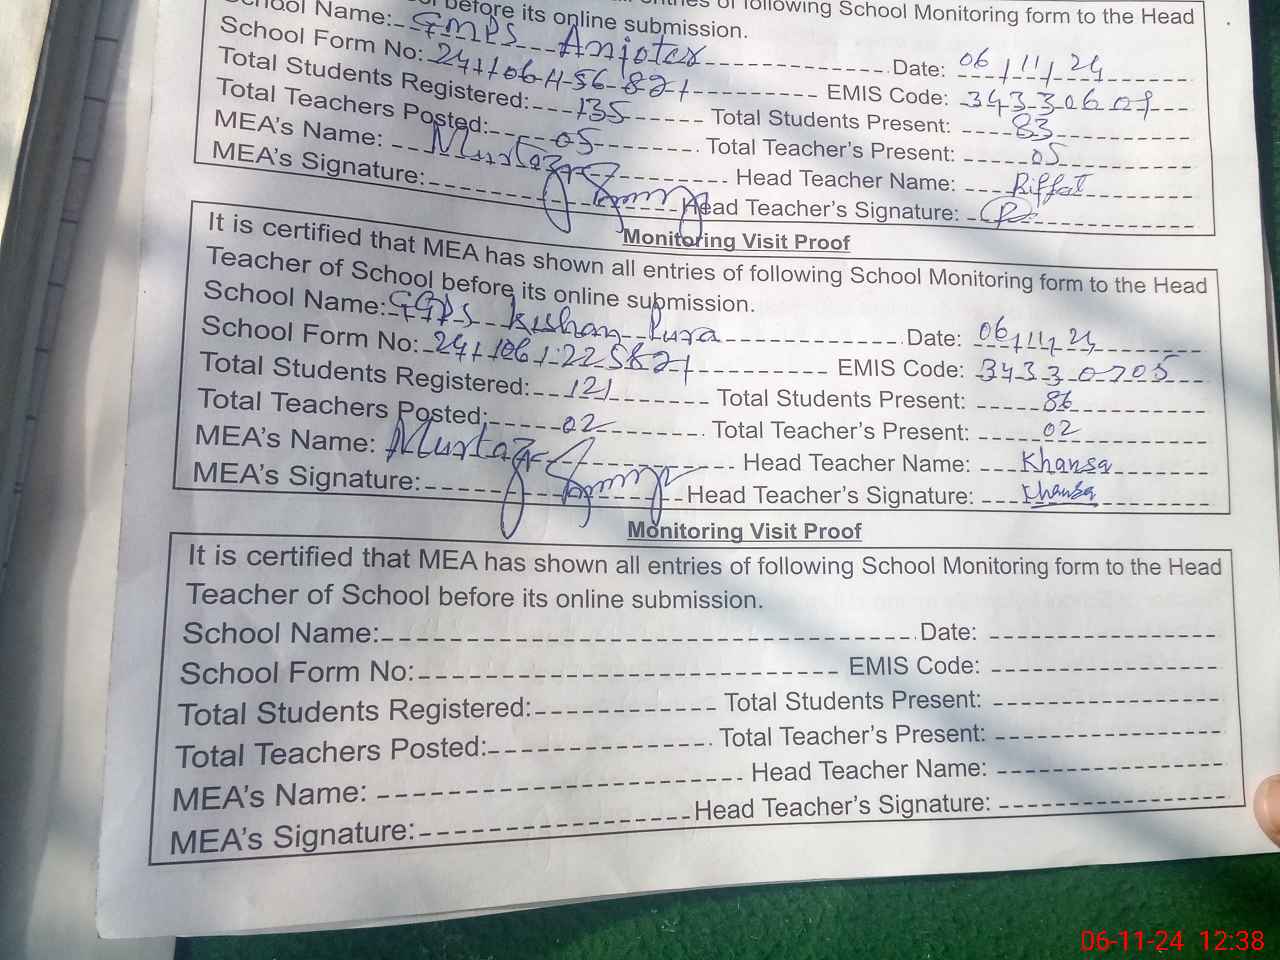 entries of following School Monitoring form to the Head
before its online submission.
School Name: GMPS Anjotar Date: 06/11/24
School Form No: EMIS Code: 34330607
Total Students Registered: 135 Total Students Present: 83
Total Teachers Posted: 05 Total Teacher's Present: 05
MEA's Name: Mumtaz Head Teacher Name: Riffat
MEA's Signature: Head Teacher's Signature:
Monitoring Visit Proof
It is certified that MEA has shown all entries of following School Monitoring form to the Head
Teacher of School before its online submission.
School Name: GGPS Kishan Pura Date: 06/11/24
School Form No: EMIS Code: 34330705
Total Students Registered: 121 Total Students Present: 86
Total Teachers Posted: 02 Total Teacher's Present: 02
MEA's Name: Mumtaz Head Teacher Name: Khansa
MEA's Signature: Head Teacher's Signature: Khansa
Monitoring Visit Proof
It is certified that MEA has shown all entries of following School Monitoring form to the Head
Teacher of School before its online submission.
School Name: Date:
School Form No: EMIS Code:
Total Students Registered: Total Students Present:
Total Teachers Posted: Total Teacher's Present:
MEA's Name: Head Teacher Name:
MEA's Signature: Head Teacher's Signature:
06-11-24 12:38